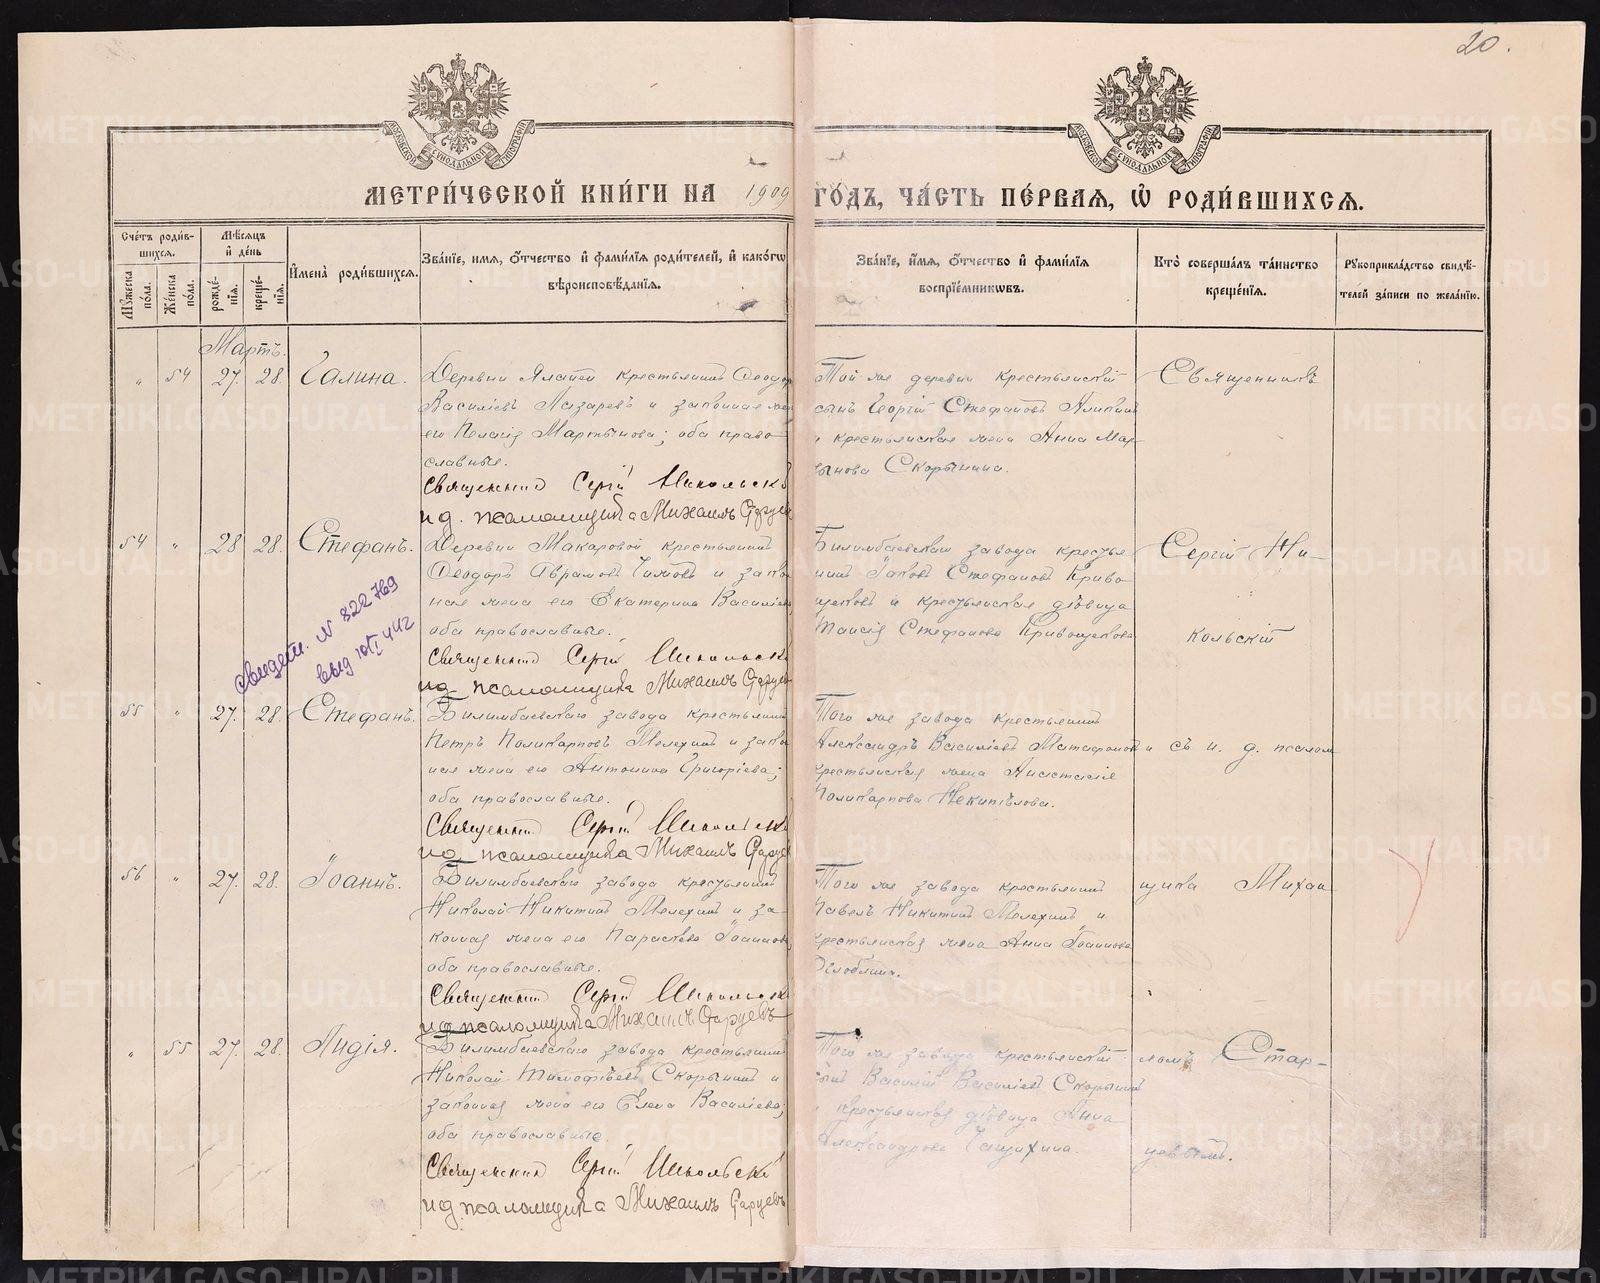 20.
МОСКОВСКОЙ СѴНОДАЛЬНОЙ ТИПОГРАФІИ
МОСКОВСКОЙ СѴНОДАЛЬНОЙ ТИПОГРАФІИ
МЕТРИ́ЧЕСКОЙ КНИ́ГИ НА 1909 ГО́ДЪ, ЧА́СТЬ ПЕ́РВАЯ, Ѡ҆ РОДИ́ВШИХСЯ.
Сче́тъ роди́в-
шихся.
Мꙋ́жеска по́ла.
Же́нска по́ла.
Мѣ́сяцъ
и҆ де́нь
рожде́-
нїя.
креще́-
нїя.
И҆мена̀ роди́вшихся.
Зва́нїе, имя, ѻ҆́тчество и҆ фами́лїя роди́телей, и҆ како́гѡ
вѣроисповѣ́данїя.
Зва́нїе, и҆́мя, ѻ҆́тчество и҆ фами́лїя
воспрїе́мникѡвъ.
Кто̀ соверша́лъ та́инство
креще́нїя.
Рꙋкоприкла́дство свидѣ́-
телей за́писи по жела́нїю.
Мартъ.
" 54 27. 28. Галина.
Деревни Ялатей крестьянинъ Ѳеодор
Василіевъ Лазаревъ и законная же
его Пелагія Мартынова; оба право-
славные.
Священник Сергій Никольскі
и д. псаломщика Михаилъ
Той же деревни крестьянскій
сынъ Георгій Стефановъ
и крестьянская жена Анна Мар-
тынова Скорынина.
Священникъ
54 " 28 28. Стефанъ.
Деревни Макаровой крестьянинъ
Ѳеодоръ Аврамовъ и зако
ная жена его Екатерина Василіева
оба православные.
Священник Сергій Никольскі
ид псаломщика Михаилъ
Билимбаевскаго завода крестья-
нинъ Іаковъ Стефановъ Криво-
щековъ и крестьянская дѣвица
Таисія Стефанова Кривощекова
Сергій Ни-
кольскій
свидет. N 822769
выд
55 " 27. 28. Стефанъ.
Билимбаевскаго завода крестьянинъ
Петръ Поликарповъ Мелехинъ и зако
ная жена его Антонина Григоріева;
оба православные.
Священник Сергій Никольскі
ид псаломщика Михаилъ
Того же завода крестьянинъ
Александръ Василіевъ Матафоновъ и
крестьянская жена Анастасія
Поликарпова
съ и. д. псалом
56 " 27. 28. Іоаннъ.
Билимбаевскаго завода крестьянинъ
Николай Никитинъ Мелехинъ и за-
конная жена его Параскева Іоаннова
оба православные.
Священник Сергій Никольскі
ид псаломщика Михаилъ Старцевъ
Того же завода крестьянинъ
Павелъ Никитинъ Мелехинъ и
крестьянская жена Анна Іоаннова
щика Михаи
" 55 27. 28. Лидія.
Билимбаевскаго завода крестьянинъ
Николай Тимоѳеевъ Скорынинъ и
законная жена его Елена Василіева;
оба православные.
Священник Сергій Никольскі
ид. псаломщика Михаилъ Старцевъ
Того же завода крестьянскій
сынъ Василій Василіевъ Скорынинъ
и крестьянская дѣвица Анна
Александрова Чащихина.
ломъ Стар-
цевымъ.
METRIKI.GASO-URAL.RU